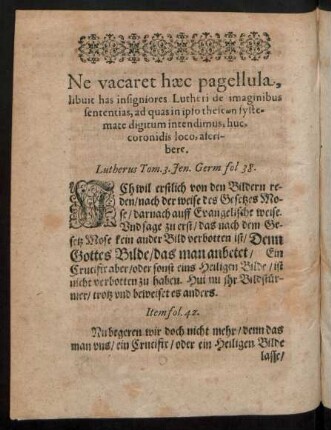 Ne vacaret hæc pagellula,
libuit has insigniores Lutheri de imaginibus
sententias, ad quas in ipso theseωn syste-
mate digitum intendimus, huc,
coronidis loco, ascri-
bere.
Lutherus Tom. 3. Jen. Germ fol 38.
ICh wil erstlich von den Bildern re-
den/ nach der weise des Gesetzes Mo-
se/ darnach auff Evangelische weise.
Vnd sage zu erst/ das nach dem Ge-
setz Mose kein ander Bild verbotten ist/ Denn
Gottes Bilde/ das man anbetet/ Ein
Crucifix aber/ oder sonst eins Heiligen Bilde/ ist
nicht verbotten zu haben. Hui nu jhr Bildstür-
mer/ trotz vnd beweiset es anders.
Item fol. 42.
Nu begeren wir doch nicht mehr/ denn das
man vns/ ein Crucifix/ oder ein Heiligen Bilde
lasse/